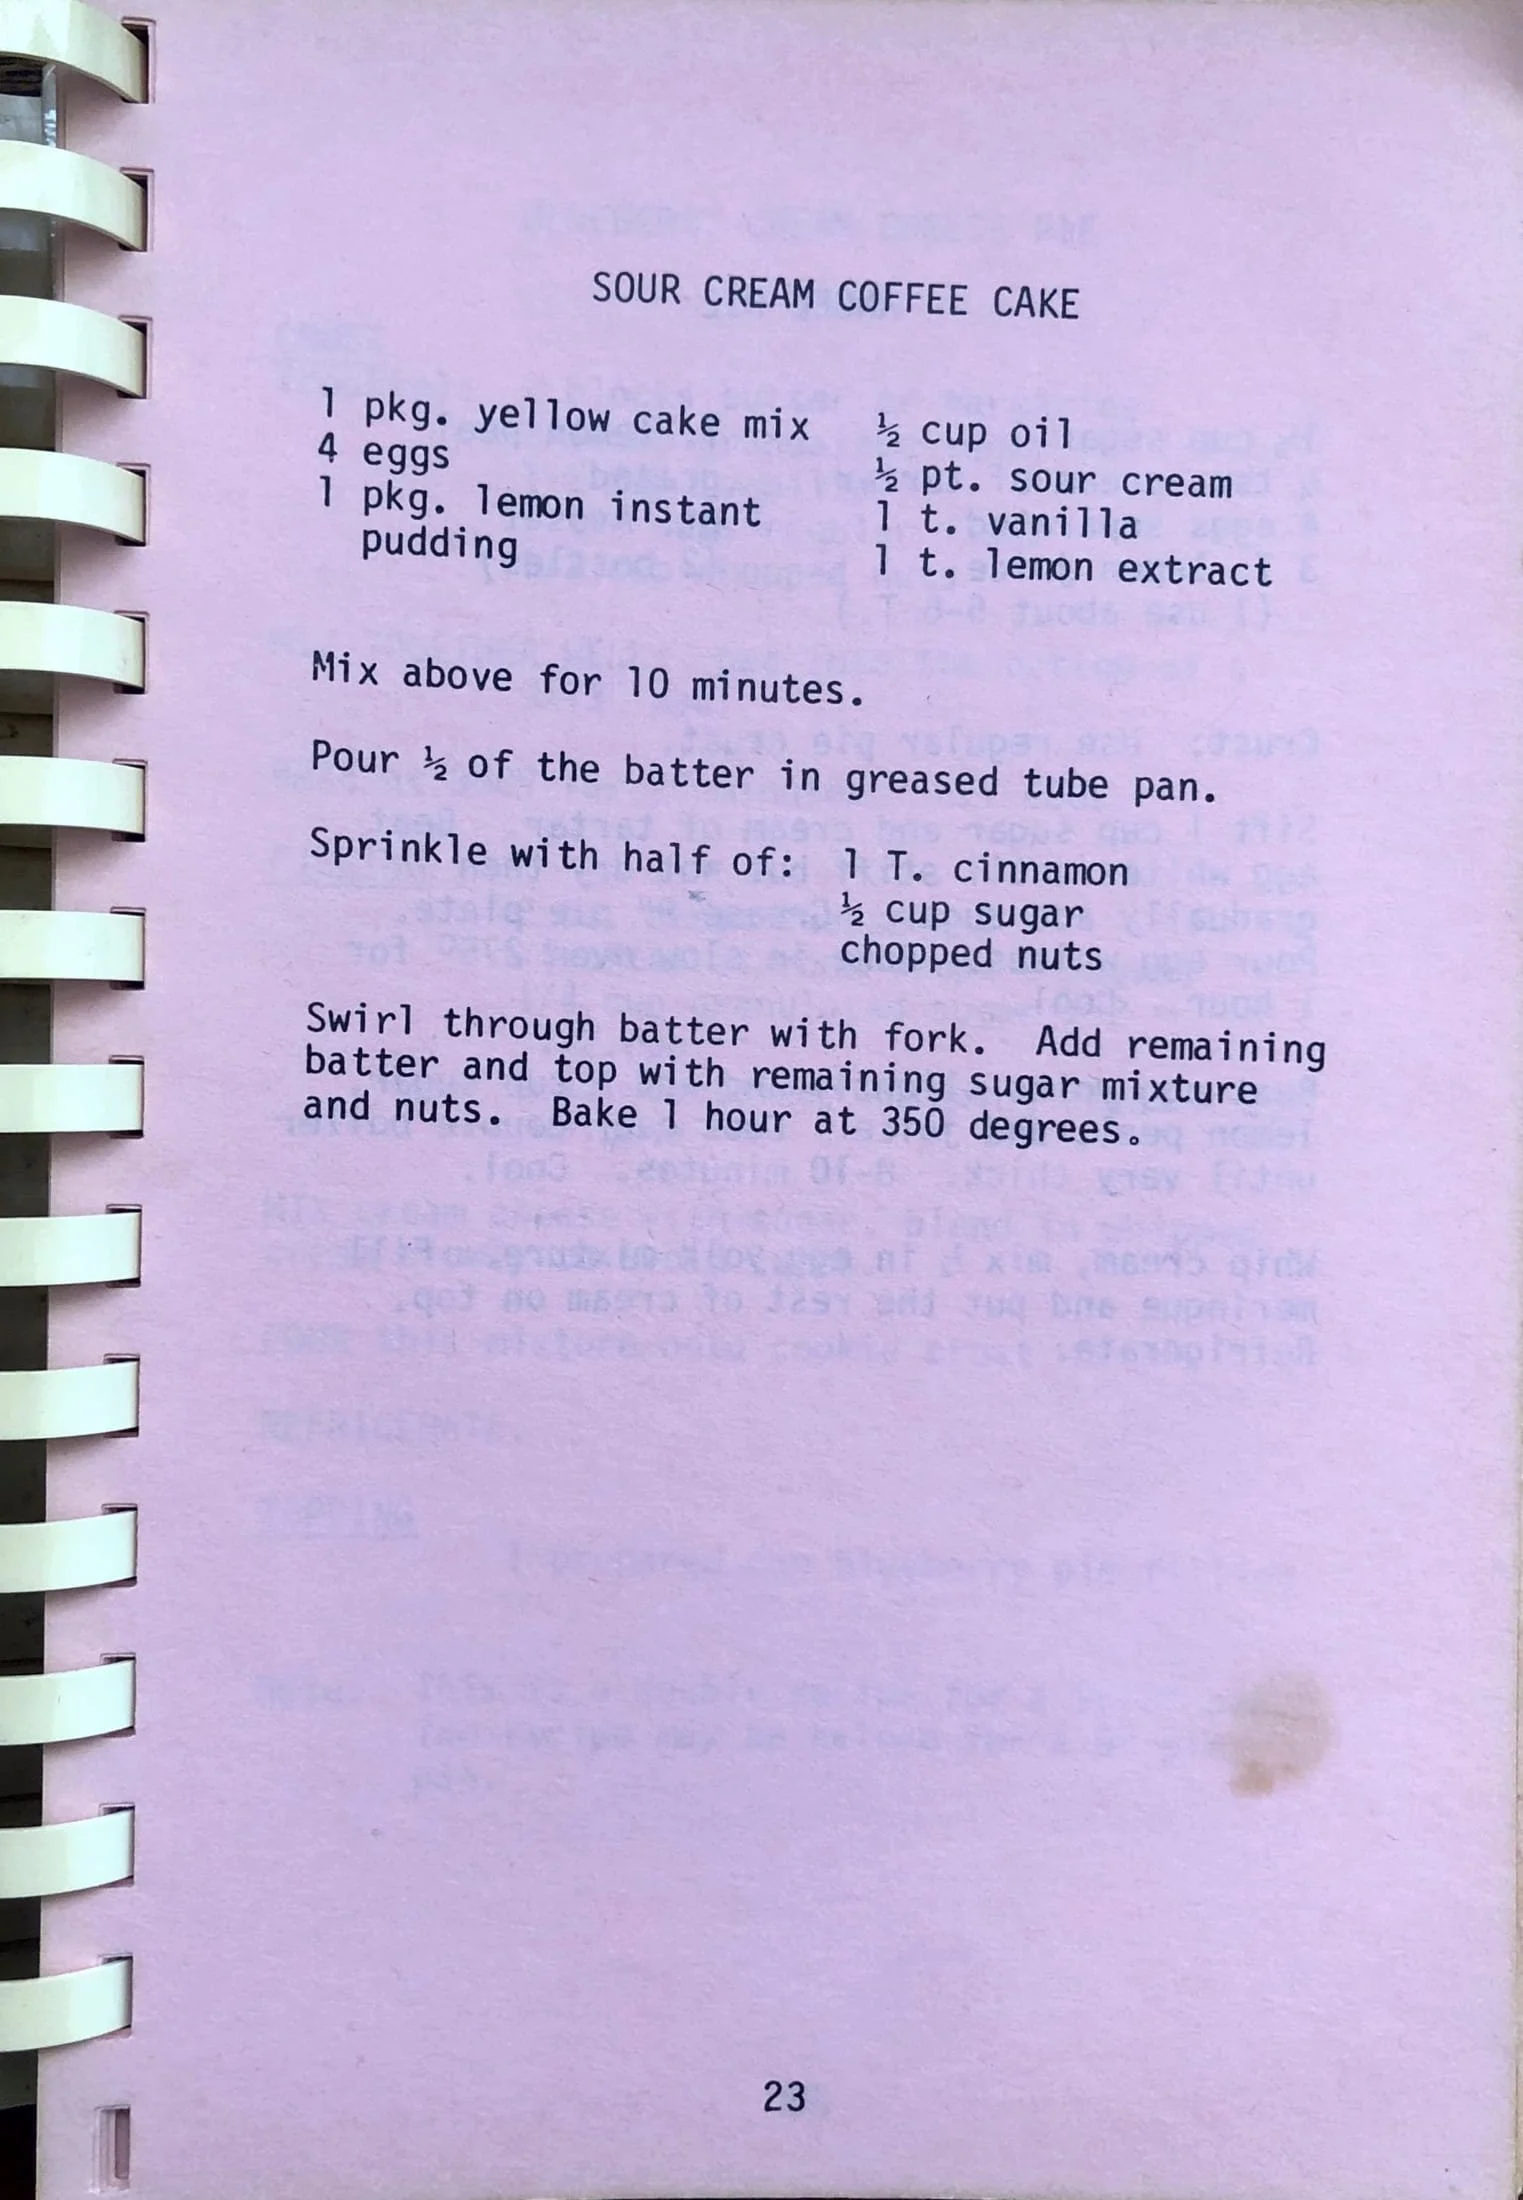 SOUR CREAM COFFEE CAKE
1 pkg. yellow cake mix
4 eggs
1 pkg. lemon instant
pudding
½ cup oil
½ pt. sour cream
1 t. vanilla
1 t. lemon extract
Mix above for 10 minutes.
Pour ½ of the batter in greased tube pan.
Sprinkle with half of: 1 T. cinnamon
½ cup sugar
chopped nuts
Swirl through batter with fork. Add remaining
batter and top with remaining sugar mixture
and nuts. Bake 1 hour at 350 degrees.
23